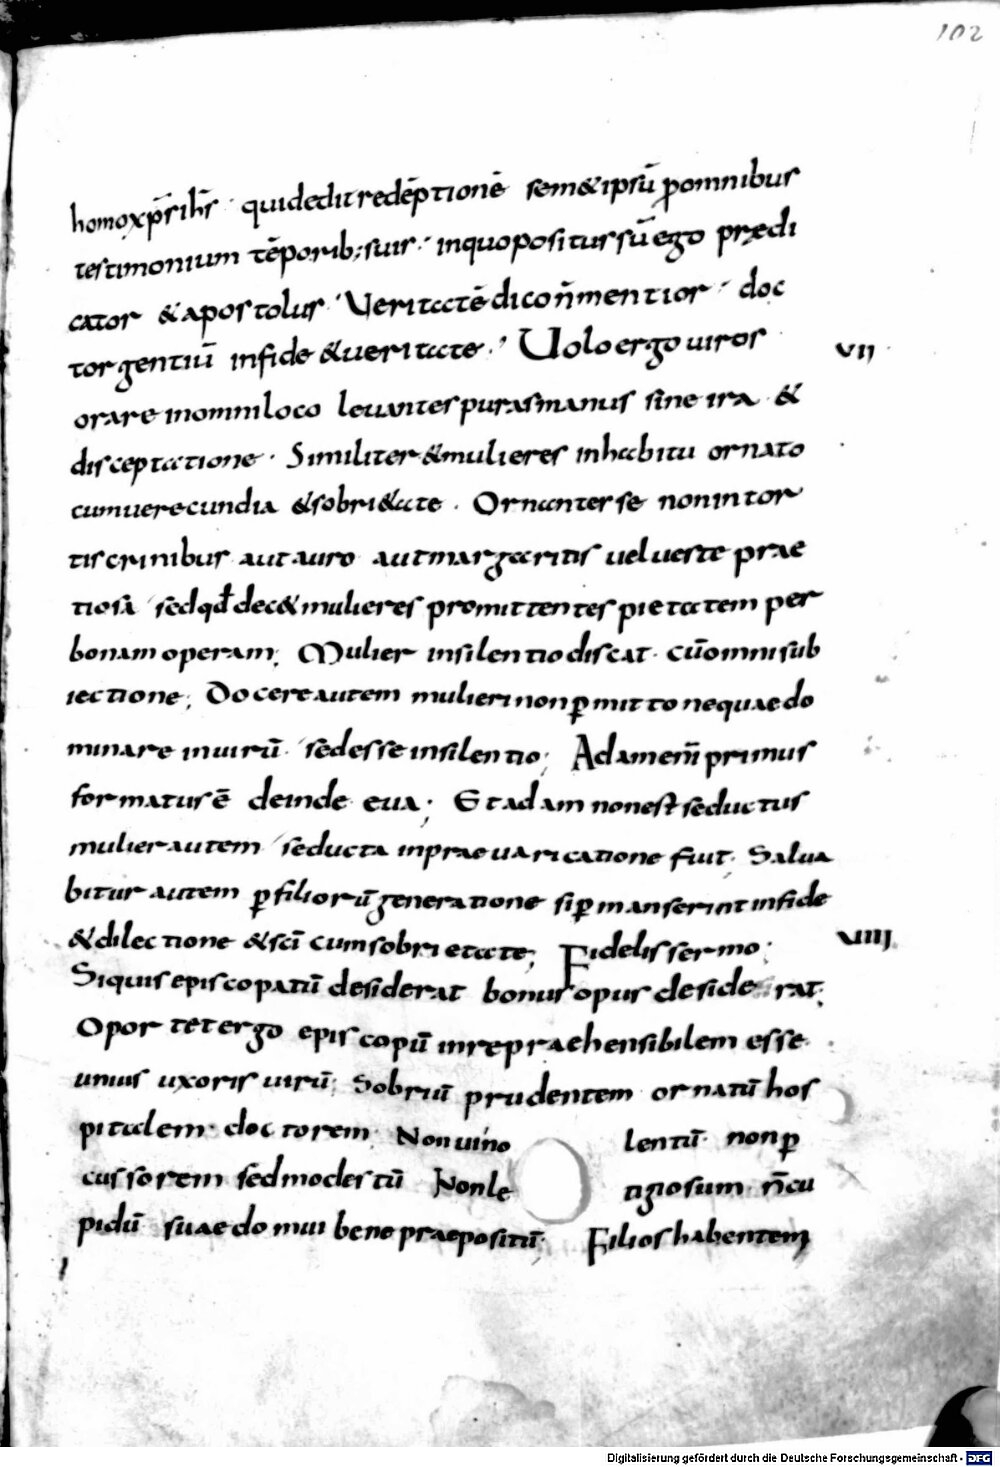 102
homo xp̄s ihs̄ · qui dedit redēptionē semetipsū ꝓ omnibus
testimonium tēporib; suis · in quo positus sū ego prędi
cator & apostolus · Veritatē dico n̄ mentior · doc
tor gentiū in fide & ueritate · Uolo ergo uiros
VII
orare in omni loco leuantes puras manus sine ira &
disceptatione · Similiter & mulieres in habitu ornato
cum uerecundia & sobri&ate · Ornanter se non in tor
tis crinibus aut auro aut margaritis uel ueste prae
tiosa sed qđ dec& mulieres promittentes pietatem per
bonam operam; Mulier in silentio discat · cū omni sub
iectione; Docere autem mulieri non ꝑmitto neque do
minare in uirū · sed esse in silentio; Adam eni͞m primus
formatus ē deinde eua; Et adam non est seductus
mulier autem seducta in praeuaricatione fuit · Salua
bitur autem ꝑ filiorū generatione si ꝑmanserint in fide
& dilectione & sci͞ cum sobrietate; Fidelis sermo;
VIIII
Si quis episcopatū desiderat bonus opus desiderat;
Oportet ergo episcopū inrepraehensibilem esse
unius uxoris uirū; Sobriū prudentem ornatū hos
pitalem · doctorem Non uino lentū · non ꝑ
cussorem sed modestū Non le tigiosum · n̄ cu
pidū suae domui bene praepositū · Filios habentem
Digitalisierung gefördert durch die Deutsche Forschungsgemeinschaft - DFG